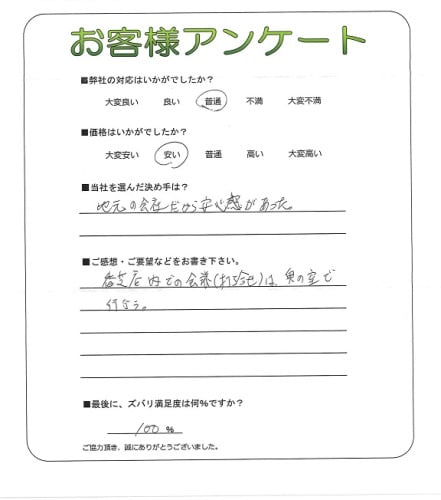 お客様アンケート
■弊社の対応はいかがでしたか？
大変良い 良い 普通 不満 大変不満
■価格はいかがでしたか？
大変安い 安い 普通 高い 大変高い
■当社を選んだ決め手は？
地元の会社だから安心感があった。
■ご感想・ご要望などをお書き下さい。
店内での会議(打合せ)は、奥の室で
行なう。
■最後に、ズバリ満足度は何％ですか？
100 %
ご協力頂き、誠にありがとうございました。